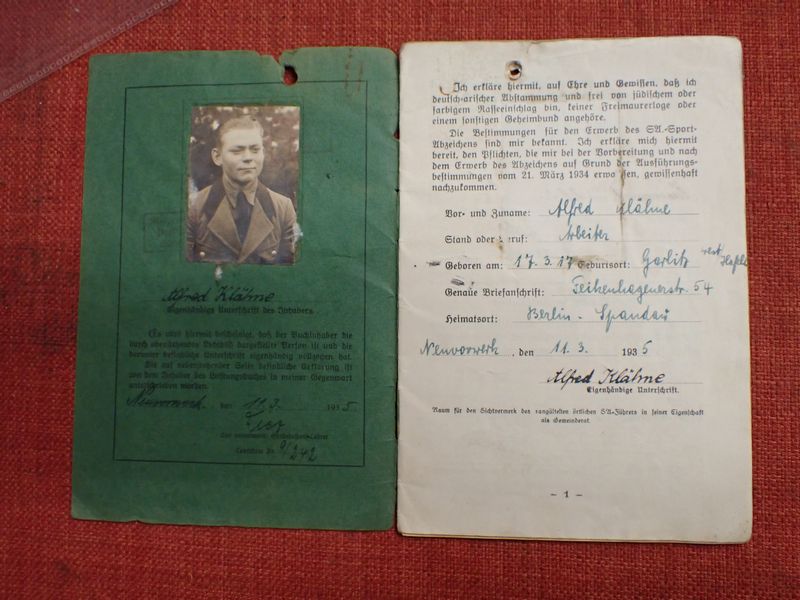 Alfred Klähme
Eigenhändige Unterschrift des Inhabers.
Es wird hiermit bescheinigt, daß der Buchinhaber die
durch obenstehendes Lichtbild dargestellte Person ist und die
darunter befindliche Unterschrift eigenhändig vollzogen hat.
Die auf nebenstehender Seite befindliche Erklärung ist
von dem Inhaber des Leistungsbuches in meiner Gegenwart
unterschrieben worden.
Neuvorwerk, den 11.3. 1935.
Ich erkläre hiermit, auf Ehre und Gewissen, daß ich
deutsch-arischer Abstammung und frei von jüdischem oder
farbigem Rasseeinschlag bin, keiner Freimaurerloge oder
einem sonstigen Geheimbund angehöre.
Die Bestimmungen für den Erwerb des SA.-Sport-
Abzeichens sind mir bekannt. Ich erkläre mich hiermit
bereit, den Pflichten, die mir bei der Vorbereitung und nach
dem Erwerb des Abzeichens auf Grund der Ausführungs-
bestimmungen vom 21. März 1934 erwachsen, gewissenhaft
nachzukommen.
Vor- und Zuname: Alfred Klähme
Stand oder Beruf: Arbeiter
Geboren am: 17.3.17 Geburtsort: Garlitz
Genaue Briefanschrift: 54
Heimatsort: Berlin-Spandau
Neuvorwerk, den 11.3. 1935
Alfred Klähme
Eigenhändige Unterschrift.
Raum für den Sichtvermerk des rangältesten örtlichen SA-Führers in seiner Eigenschaft
als Gemeinderat.
- 1 -